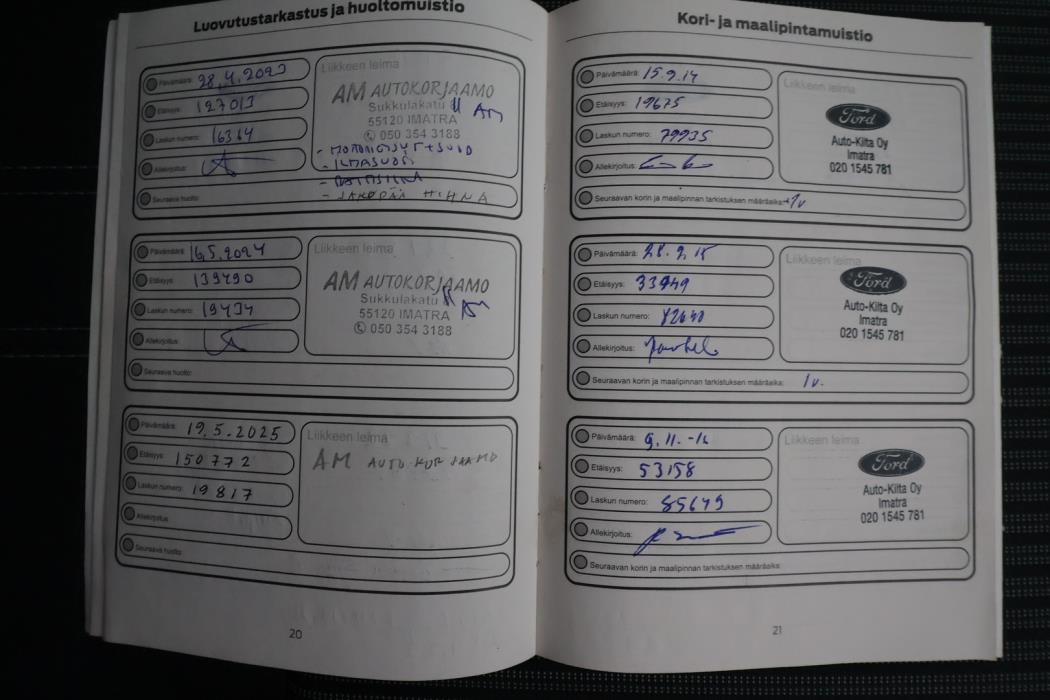 Luovutustarkastus ja huoltomuistio
Päivämäärä: 28.4.2023
Etäisyys: 127013
Laskun numero: 16364
Allekirjoitus:
Seuraava huolto:
Liikkeen leima
AM AUTOKORJAAMO
Sukkulakatu 11 AM
55120 IMATRA
050 354 3188
- MOOTTORIÖLJYT + SUOD
- ILMASUOD
- JAKOPÄÄ HIHNA
Päivämäärä: 16.5.2024
Etäisyys: 139490
Laskun numero: 19434
Allekirjoitus:
Seuraava huolto:
Liikkeen leima
AM AUTOKORJAAMO
Sukkulakatu 11 AM
55120 IMATRA
050 354 3188
Päivämäärä: 19.5.2025
Etäisyys: 150772
Laskun numero: 19817
Allekirjoitus:
Seuraava huolto:
Liikkeen leima
AM AUTOKORJAAMO
20
Kori- ja maalipintamuistio
Päivämäärä: 15.9.14
Etäisyys: 19675
Laskun numero: 79935
Allekirjoitus:
Seuraavan korin ja maalipinnan tarkistuksen määräaika: 1v
Liikkeen leima
Ford
Auto-Kilta Oy
Imatra
020 1545 781
Päivämäärä: 28.9.15
Etäisyys: 33949
Laskun numero: 82640
Allekirjoitus:
Seuraavan korin ja maalipinnan tarkistuksen määräaika: 1v.
Liikkeen leima
Ford
Auto-Kilta Oy
Imatra
020 1545 781
Päivämäärä: 9.11.-16
Etäisyys: 53158
Laskun numero: 85649
Allekirjoitus:
Seuraavan korin ja maalipinnan tarkistuksen määräaika:
Liikkeen leima
Ford
Auto-Kilta Oy
Imatra
020 1545 781
21